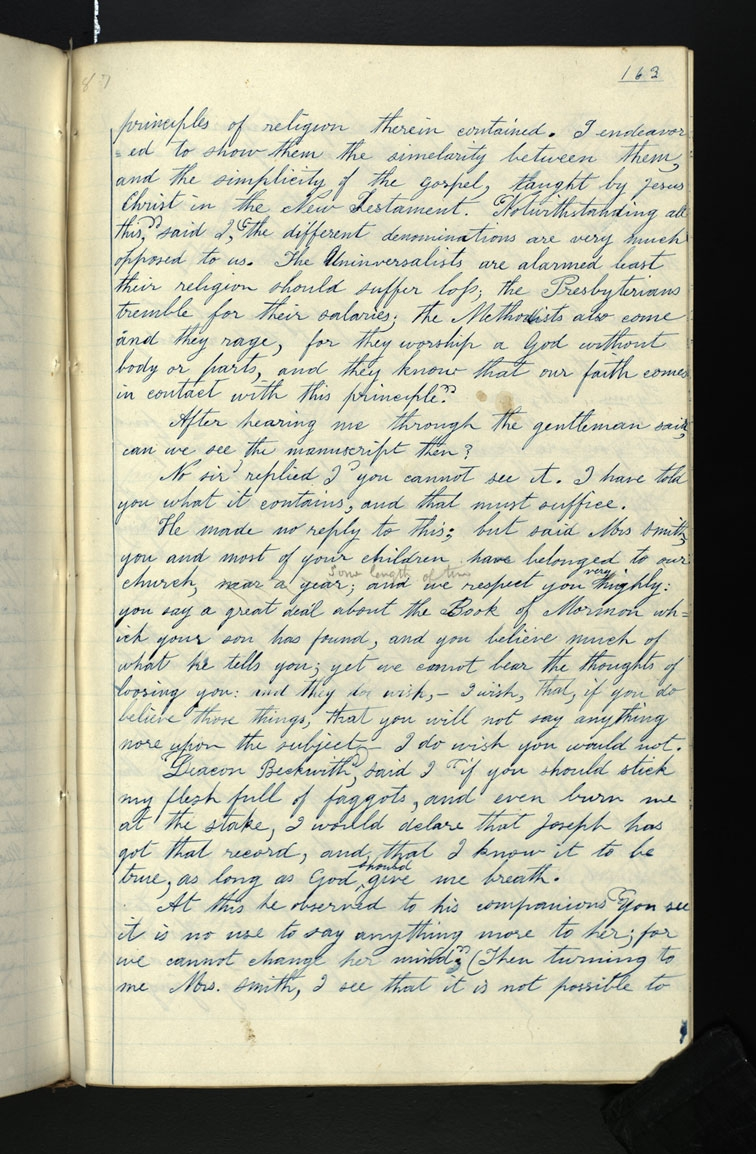 87
163
principles of religion therein contained. I endeavor
=ed to show them the simelarity between them,
and the simplicity of the gospel, taught by Jesus
Christ in the New Testament. "Notwithstanding all
this," said I, "the different denominations are very much
opposed to us. The Uninversalists are alarmed least
their religion should suffer loss; the Presbyterians
tremble for their salaries; the Methodists also come
and they rage, for they worship a God without
body or parts, and they know that our faith comes
in contact with this principle."
After hearing me through the gentleman said,
can we see the manuscript then?
No sir" replied I "you cannot see it. I have told
you what it contains, and that must suffice.
He made no reply to this; but said Mrs Smith,
you and most of your children have belonged to our
some length of time
very
church, near a year; and we respect you highly:
you say a great deal about the Book of Mormon wh=
ich your son has found, and you believe much of
what he tells you; yet we cannot bear the thoughts of
loosing you: and they do wish,— I wish, that, if you do
believe those things, that you will not say anything
more upon the subject— I do wish you would not.
"Deacon Beckwith", said I "if you should stick
my flesh full of faggots, and even burn me
at the stake, I would delare that Joseph has
got that record, and that I know it to be
should
true, as long as God give me breath.
At this he observed to his companions "You see
it is no use to say anything more to her; for
we cannot change her mind;" (Then turning to
me Mrs. Smith, I see that it is not possible to